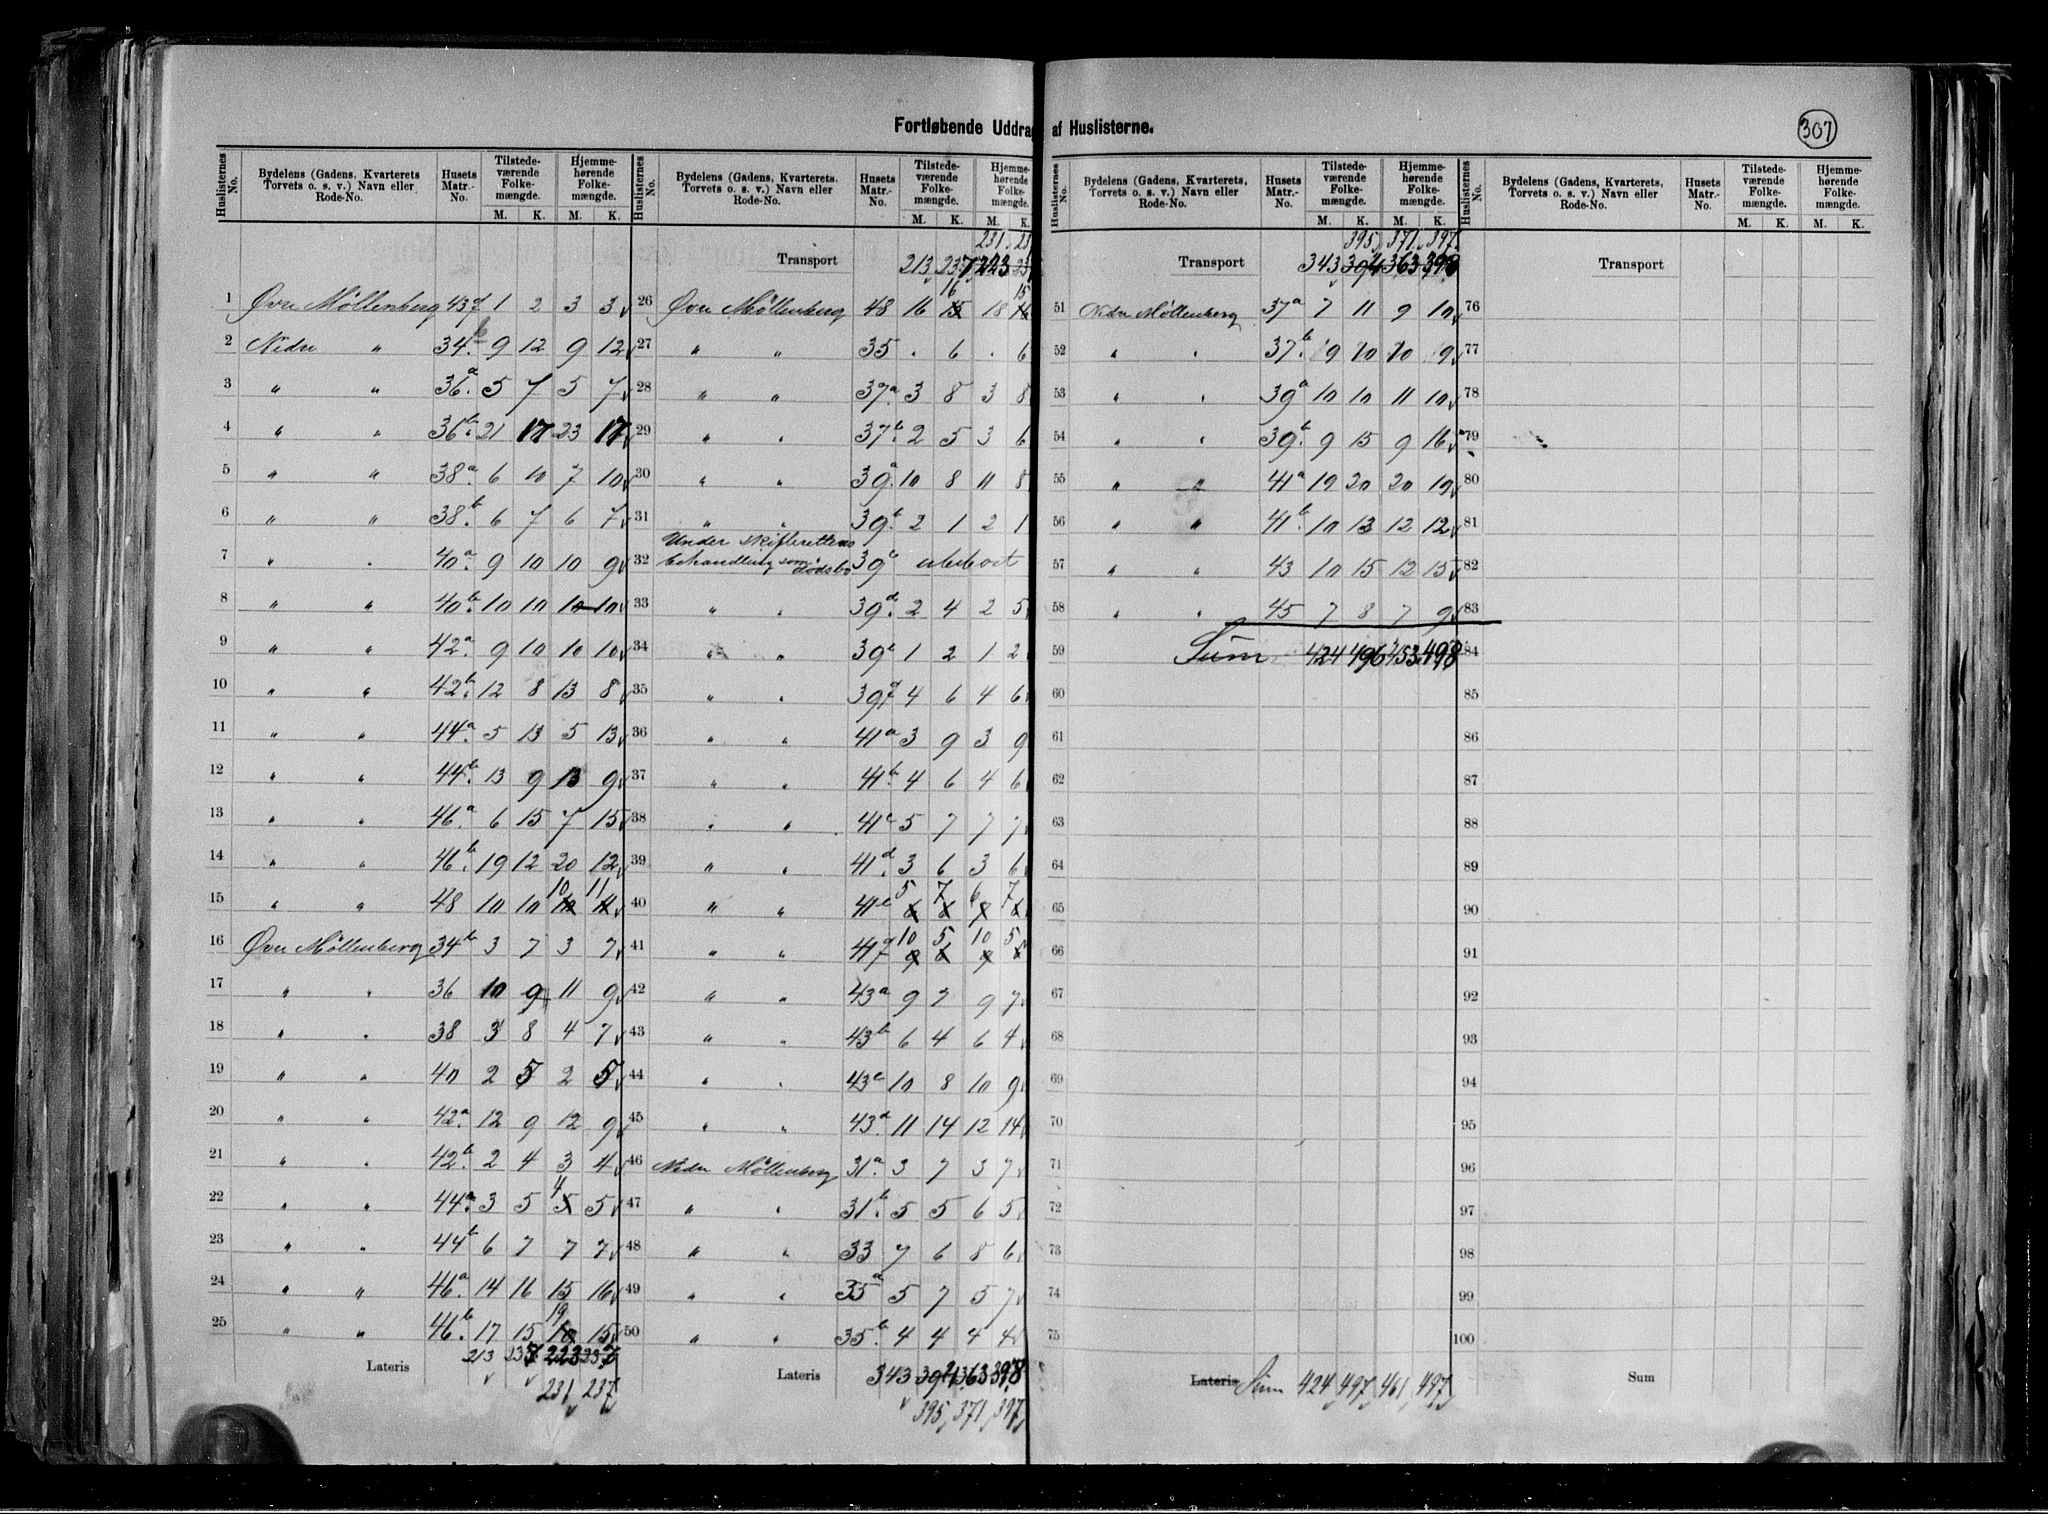 Fortløbende Uddrag af Huslisterne.
307
Huslisternes No. | Bydelens (Gadens, Kvarterets, Torvets o. s. v.) Navn eller Rode-No. | Husets Matr.-No. | Tilstedeværende Folkemængde. M. K. | Hjemmehørende Folkemængde. M. K.
1 Øvre Møllenberg 43f 1 2 3 3
2 Nedre " 34b 9 12 9 12
3 " " 36a 5 7 5 7
4 " " 36b 21 17 23 17
5 " " 38a 6 10 7 10
6 " " 38b 6 7 6 7
7 " " 40a 9 10 10 9
8 " " 40b 10 10 10 10
9 " " 42a 9 10 10 10
10 " " 42b 12 8 13 8
11 " " 44a 5 13 5 13
12 " " 44b 13 9 13 9
13 " " 46a 6 15 7 15
14 " " 46b 19 12 20 12
15 " " 48 10 10 10 11
16 Øvre Møllenberg 34b 3 7 3 7
17 " " 36 10 9 11 9
18 " " 38 3 8 4 7
19 " " 40 2 5 2 5
20 " " 42a 12 9 12 9
21 " " 42b 2 4 3 4
22 " " 44a 3 5 4 5
23 " " 44b 6 7 7 7
24 " " 46a 14 16 15 16
25 " " 46b 17 15 19 15
Lateris 213 237 223 237
231 237
Huslisternes No. | Bydelens (Gadens, Kvarterets, Torvets o. s. v.) Navn eller Rode-No. | Husets Matr.-No. | Tilstedeværende Folkemængde. M. K. | Hjemmehørende Folkemængde. M. K.
231 23
Transport 213 237 223 23
26 Øvre Møllenberg 48 16 16 18 15
27 " " 35 . 6 . 6
28 " " 37a 3 8 3 8
29 " " 37b 2 5 3 6
30 " " 39a 10 8 11 8
31 " " 39b 2 1 2 1
Under Skifterettens
32 behandling som dødsbo 39c ubeboet
33 " " 39d 2 4 2 5
34 " " 39e 1 2 1 2
35 " " 39f 4 6 4 6
36 " " 41a 3 9 3 9
37 " " 41b 4 6 4 6
38 " " 41c 5 7 7 7
39 " " 41d 3 6 3 6
40 " " 41e 5 7 6 7
41 " " 41f 10 5 10 5
42 " " 43a 9 7 9 7
43 " " 43b 6 4 6 4
44 " " 43c 10 8 10 9
45 " " 43d 11 14 12 14
46 Nedre Møllenberg 31a 3 7 3 7
47 " " 31b 5 5 6 5
48 " " 33 7 6 8 6
49 " " 35a 5 7 5 7
50 " " 35b 4 4 4 4
Lateris 343 394 363 398
395 371 397
Huslisternes No. | Bydelens (Gadens, Kvarterets, Torvets o. s. v.) Navn eller Rode-No. | Husets Matr.-No. | Tilstedeværende Folkemængde. M. K. | Hjemmehørende Folkemængde. M. K.
395 371 397
Transport 343 394 363 398
51 Nedre Møllenberg 37a 7 11 9 10
52 " " 37b 9 10 10 9
53 " " 39a 10 10 11 10
54 " " 39b 9 15 9 16
55 " " 41a 19 20 20 19
56 " " 41b 10 13 12 12
57 " " 43 10 15 12 15
58 " " 45 7 8 7 9
59 Sum 424 496 453 498
60
61
62
63
64
65
66
67
68
69
70
71
72
73
74
75
Lateris Sum 424 497 461 497
Huslisternes No. | Bydelens (Gadens, Kvarterets, Torvets o. s. v.) Navn eller Rode-No. | Husets Matr.-No. | Tilstedeværende Folkemængde. M. K. | Hjemmehørende Folkemængde. M. K.
Transport
76
77
78
79
80
81
82
83
84
85
86
87
88
89
90
91
92
93
94
95
96
97
98
99
100
Sum